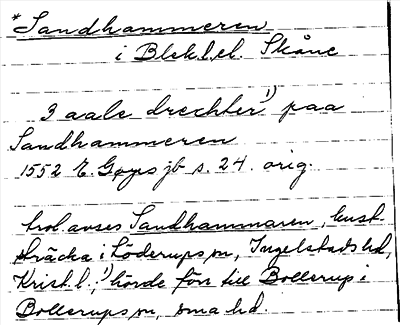 *Sandhammeren
i Blek.l. el. Skåne
3 aale drechter 1) paa
Sandhammeren
1552 E. Gøyes jb s. 24. orig.
trol. avses Sandhammaren, kust-
sträcka i Löderups sn, Ingelstads hd,
Krist. l., 1) hörde förr till Bollerup i
Bollerups sn, sma hd.